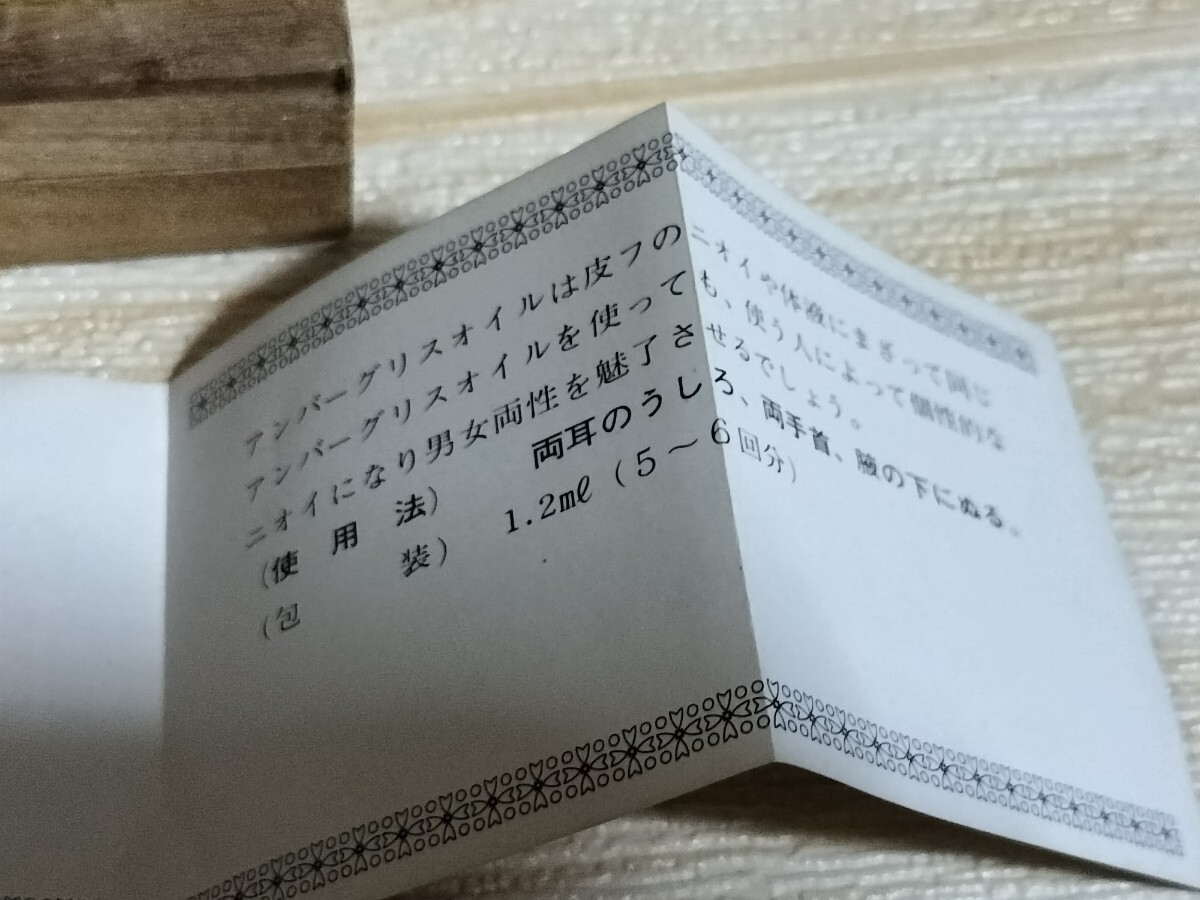 アンバーグリスオイルは皮フのニオイや体液にまざって同じ
アンバーグリスオイルを使っても、使う人によって個性的な
ニオイになり男女両性を魅了させるでしょう。
(使用法) 両耳のうしろ、両手首、腋の下にぬる。
(包装) 1.2mℓ (5～6回分)